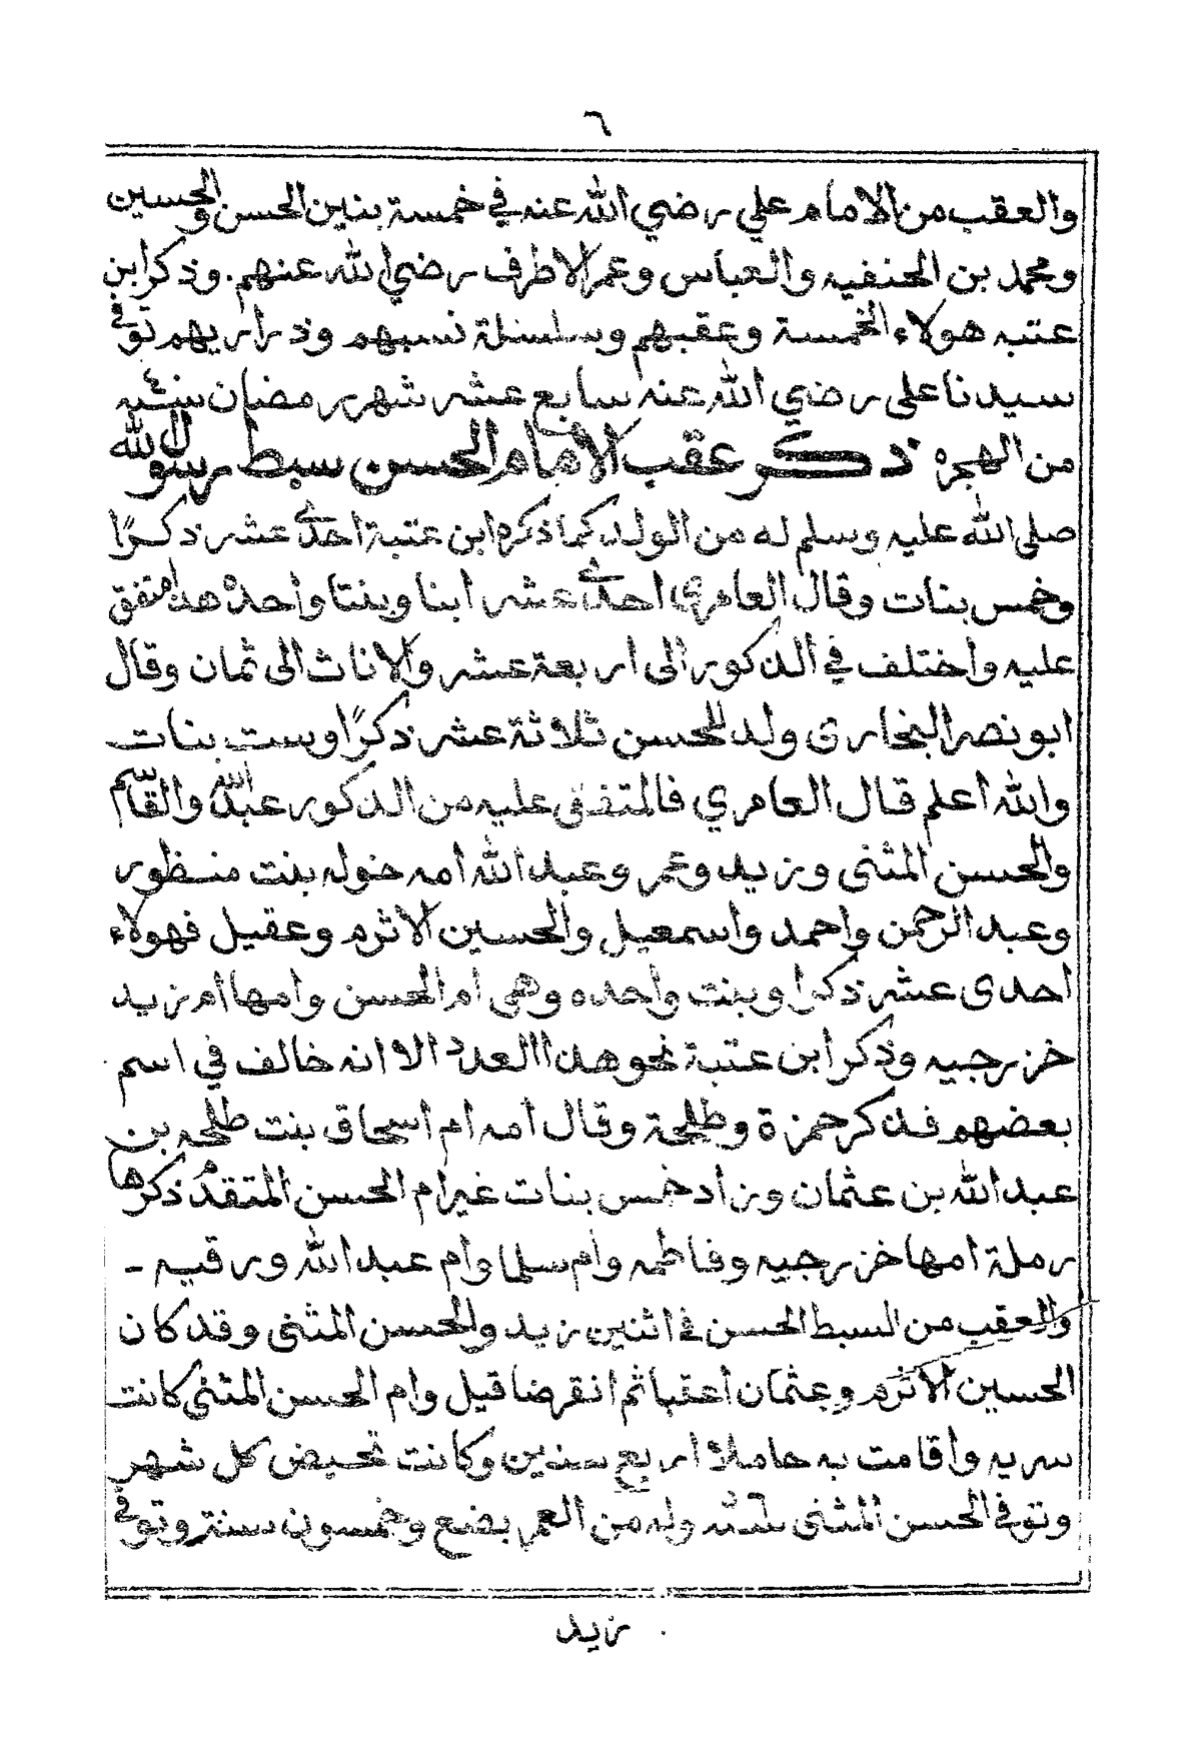 ٦
والعقب من الامام علي رضي الله عنه في خمسة بنين الحسن والحسين
ومحمد بن الحنفيه والعباس وعمر الاطرف رضي الله عنهم. وذكر ابن
عتبه هولاء الخمسة وعقبهم وسلسلة نسبهم وذراريهم توفي
سيدنا على رضي الله عنه سابع عشر شهر رمضان سنه
من الهجره ذكر عقب الامام الحسن سبط رسول الله
صلى الله عليه وسلم له من الولد كما ذكره ابن عتبة احدى عشر ذكرًا
وخمس بنات وقال العامري احدى عشر ابنا وبنتا واحده هذا متفق
عليه واختلف في الذكور الى اربعة عشر والاناث الى ثمان وقال
ابو نصر البخارى ولد للحسن ثلاثة عشر ذكرًا وست بنات
والله اعلم قال العامري فالمتفق عليه من الذكور عبد الله والقاسم
والحسن المثنى وزيد وعمر وعبد الله امه خوله بنت منظور
وعبد الرحمن واحمد واسمعيل والحسين الاثرم وعقيل فهولاء
احدى عشر ذكرا وبنت واحده وهى ام الحسن وامها ام زيد
خزرجيه وذكر ابن عتبة نحو هذا العدد الا انه خالف في اسم
بعضهم فذكر حمزة وطلحة وقال امه ام اسحاق بنت طلحه بن
عبد الله بن عثمان وزاد خمس بنات غير ام الحسن المتقدم ذكرها
رملة امها خزرجيه وفاطمه وام سلما وام عبد الله ورقيه -
والعقب من السبط الحسن في اثنين زيد والحسن المثنى وقد كان
الحسين الاثرم وعثمان اعقبا ثم انقرضا قيل وام الحسن المثنى كانت
سريه واقامت به حاملا اربع سنين وكانت تحيض كل شهر
وتوفي الحسن المثنى وله من العمر بضع وخمسون سنة وتوفي
زيد